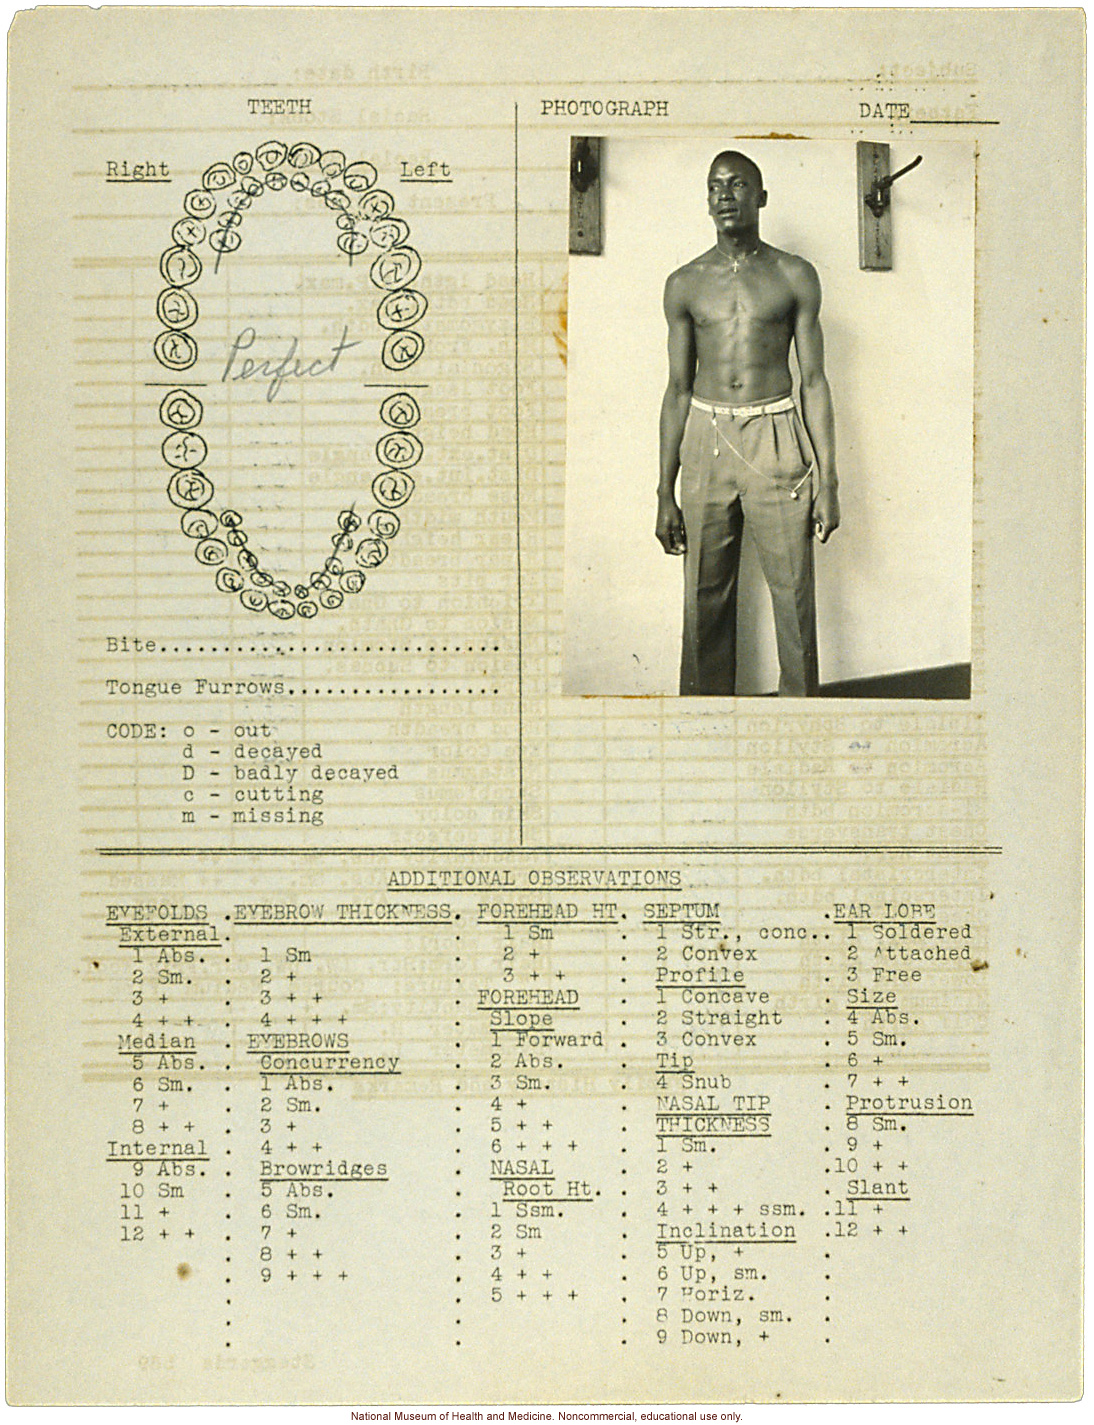 TEETH
PHOTOGRAPH
DATE
Right
Left
Perfect
Bite...........................
Tongue Furrows.................
CODE: o - out
d - decayed
D - badly decayed
c - cutting
m - missing
ADDITIONAL OBSERVATIONS
EYEFOLDS
External
1 Abs.
2 Sm.
3 +
4 + +
Median
5 Abs.
6 Sm.
7 +
8 + +
Internal
9 Abs.
10 Sm
11 +
12 + +
EYEBROW THICKNESS
1 Sm
2 +
3 + +
4 + + +
EYEBROWS
Concurrency
1 Abs.
2 Sm.
3 +
4 + +
Browridges
5 Abs.
6 Sm.
7 +
8 + +
9 + + +
FOREHEAD HT.
1 Sm
2 +
3 + +
FOREHEAD
Slope
1 Forward
2 Abs.
3 Sm.
4 +
5 + +
6 + + +
NASAL
Root Ht.
1 Ssm.
2 Sm
3 +
4 + +
5 + + +
SEPTUM
1 Str., conc.
2 Convex
Profile
1 Concave
2 Straight
3 Convex
Tip
4 Snub
NASAL TIP
THICKNESS
1 Sm.
2 +
3 + +
4 + + + ssm.
Inclination
5 Up, +
6 Up, sm.
7 Horiz.
8 Down, sm.
9 Down, +
EAR LOBE
1 Soldered
2 Attached
3 Free
Size
4 Abs.
5 Sm.
6 +
7 + +
Protrusion
8 Sm.
9 +
10 + +
Slant
11 +
12 + +
National Museum of Health and Medicine. Noncommercial, educational use only.